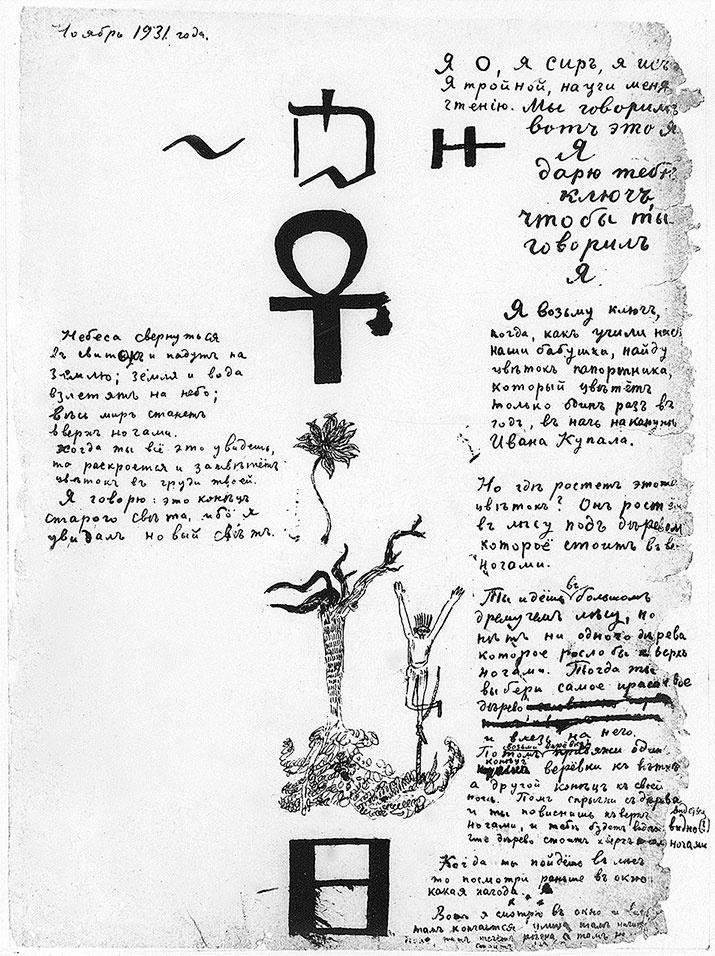 Ноябрь 1931. года.
Я О, я сиръ, я исъ
Я тройной, научи меня
чтенію. Мы говоримъ
вотъ это я
Я
дарю тебѣ
ключъ,
чтобы ты
говорилъ
Я.
Я возьму ключъ,
когда, какъ учили насъ
наши бабушки, найду
цвѣтокъ папортника,
который цвѣтётъ
только одинъ разъ въ
годъ, въ ночь наканунѣ
Ивана Купала.
Небеса свернуться
въ свитокъ и падутъ на
землю; земля и вода
взлетятъ на небо;
весь миръ станетъ
вверхъ ногами.
Когда ты всё это увидешь,
то раскроется и зацвѣтётъ
цвѣтокъ въ груди твоей.
Я говорю: это конецъ
старого свѣта, ибо я
увидалъ новый свѣтъ.
Но гдѣ ростетъ этотъ
цвѣтокъ? Онъ ростё
въ лѣсу подъ дѣревом
которое стоитъ вверх
ногами.
Ты идёшь въ большомъ
дремучемъ лѣсу, но
нѣтъ ни одного дѣрева
которое росло бы вверхъ
ногами. Тогда ты
выбери самое красивое
дѣрево
и влезь на него.
Потомъ возьми верёвку привяжи одинъ
конецъ верёвки къ вѣткѣ
а другой конецъ къ своей
ногѣ. Потомъ спрыгни съ дѣрева
и ты повиснешь къверхъ
ногами, и тебѣ будетъ видно
что дѣрево стоитъ къверхъ ногами
Когда ты пойдёшь въ лѣсъ
то посмотри раньше въ окно
какая погода.
Вотъ я смотрю въ окно и вижу
тамъ кончается улица тамъ начин
поле, тамъ течётъ рѣчка а тамъ
стоитъ